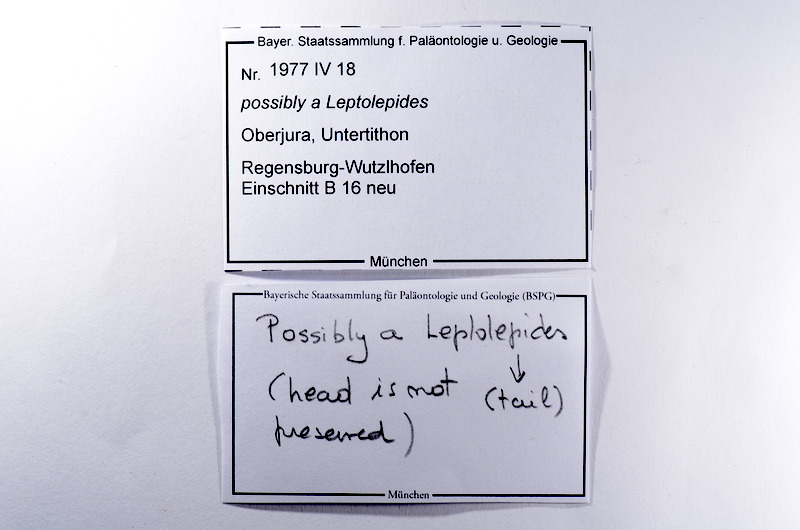 Bayer. Staatssammlung f. Paläontologie u. Geologie
Nr. 1977 IV 18
possibly a Leptolepides
Oberjura, Untertithon
Regensburg-Wutzlhofen
Einschnitt B 16 neu
München
Bayerische Staatssammlung für Paläontologie und Geologie (BSPG)
Possibly a Leptolepides
↓
(head is not (tail)
preserved)
München